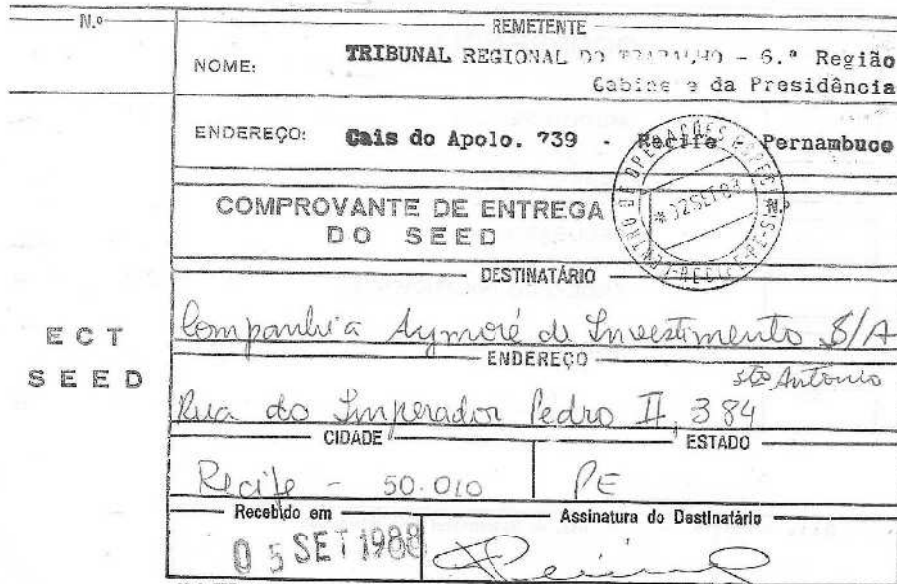 N.º
REMETENTE
NOME: TRIBUNAL REGIONAL DO TRABALHO - 6.ª Região
Gabinete da Presidência
ENDEREÇO: Cais do Apolo. 739 - Recife - Pernambuco
COMPROVANTE DE ENTREGA N.º
DO SEED
CENTRO DE OPERAÇÕES
RECIFE-PE
DESTINATÁRIO
Companhia Aymoré de Investimento S/A
ENDEREÇO
Sto Antonio
Rua do Imperador Pedro II, 384
CIDADE ESTADO
Recife - 50.010 PE
Recebido em Assinatura do Destinatário
05 SET 1988
ECT
SEED